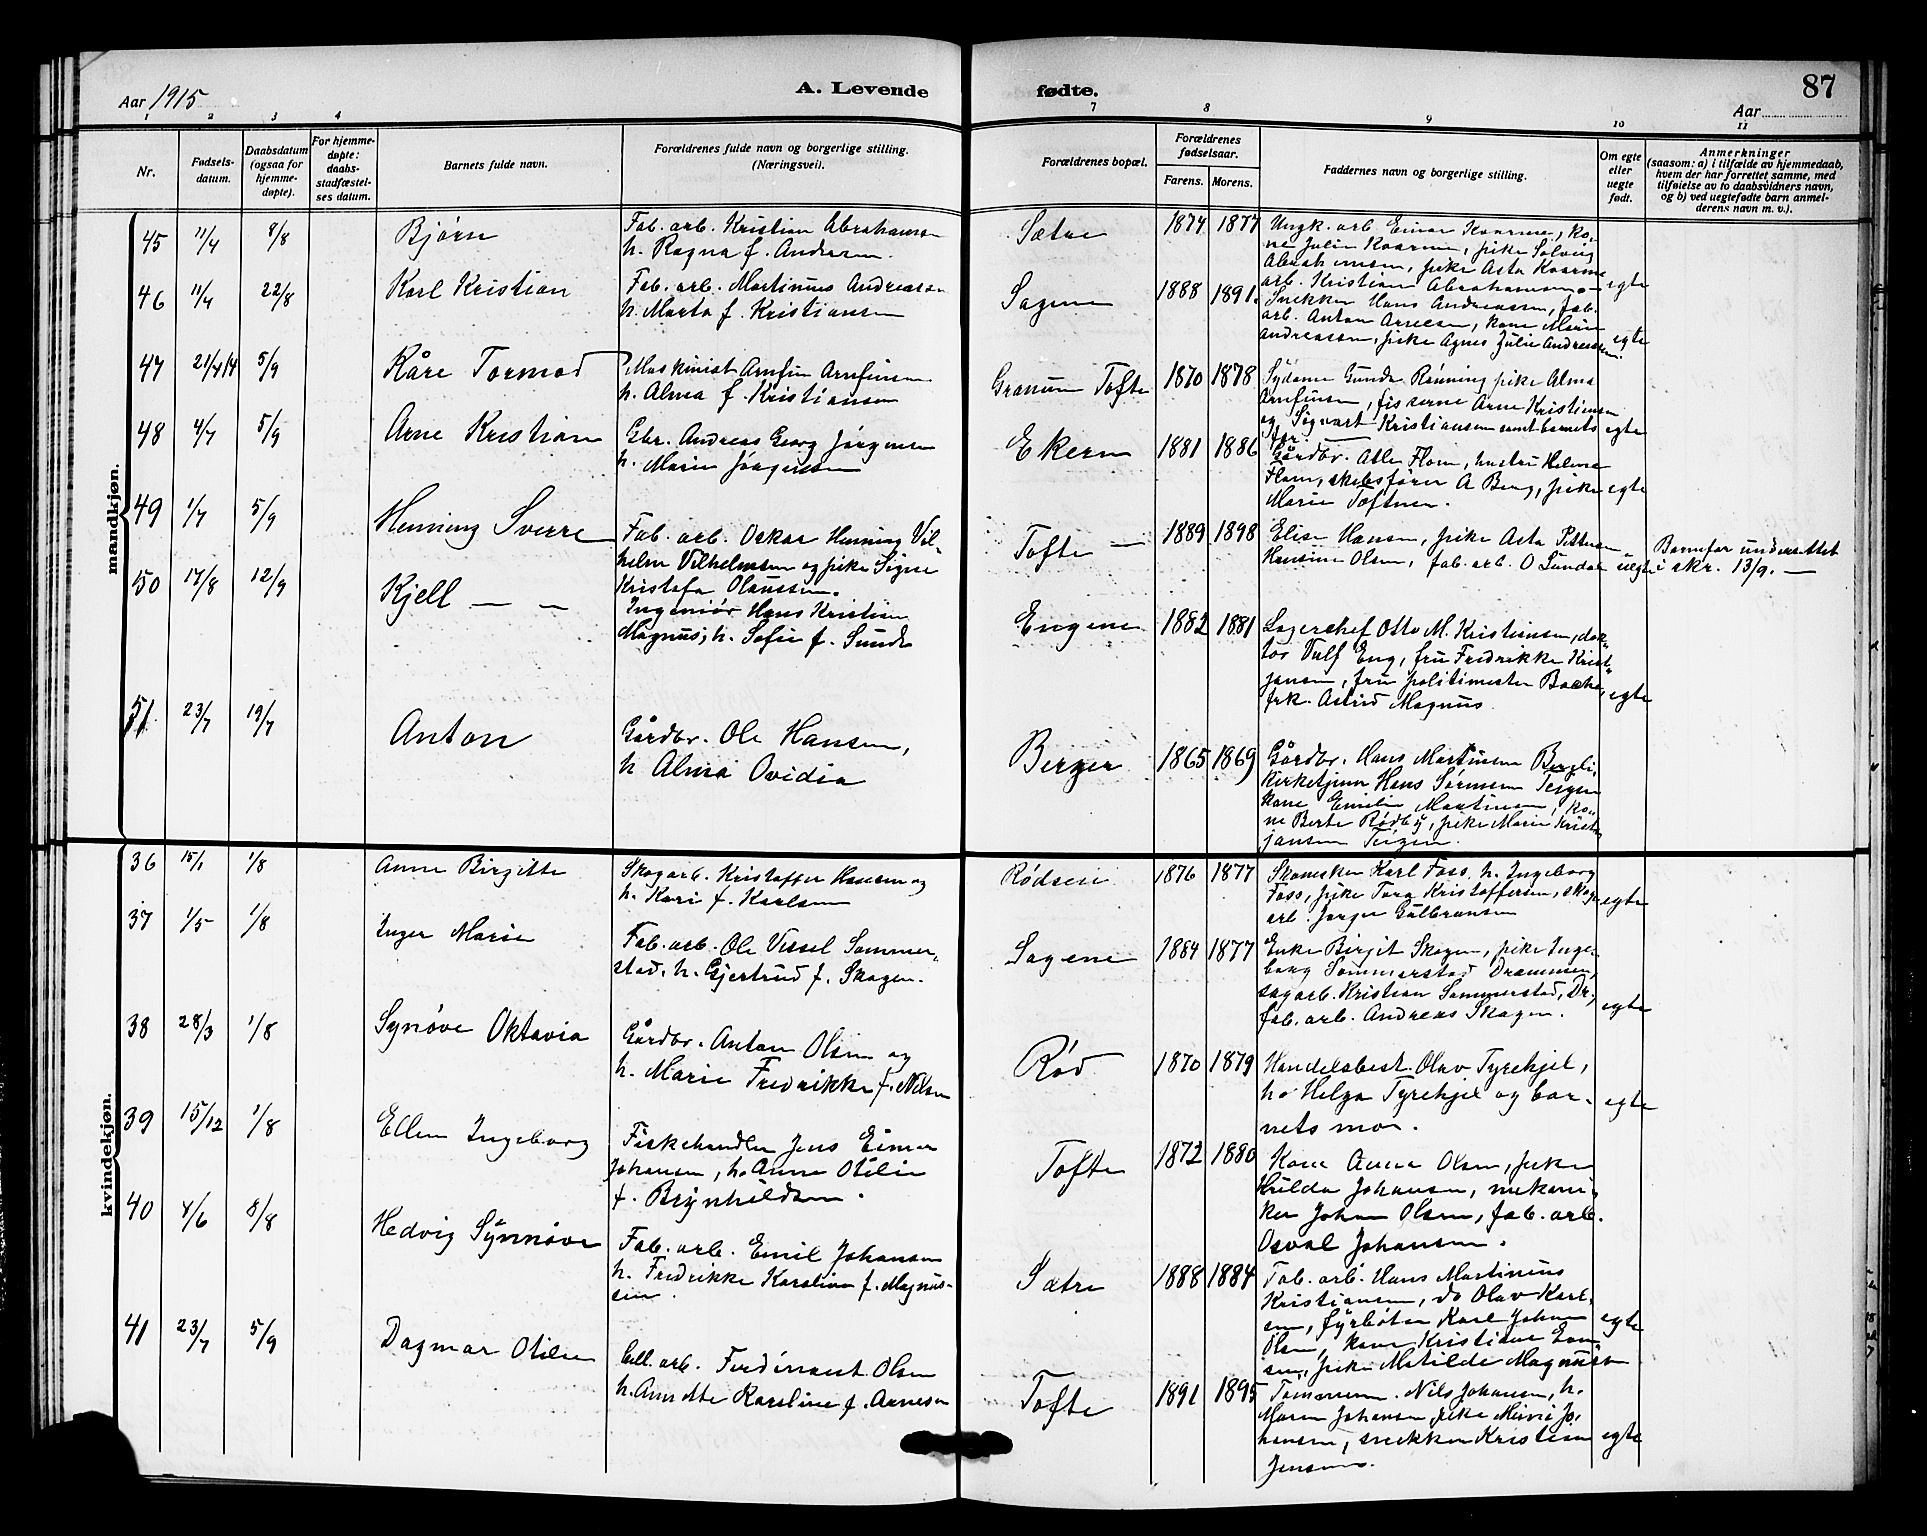 Aar 1915
A. Levende
fødte.
87
Aar
1 2 3 4 7 8 9 10 11
Nr.
Fødsels-
datum.
Daabsdatum
(ogsaa for
hjemme-
døpte).
For hjemme-
døpte:
daabs-
stadfæstel-
ses datum.
Barnets fulde navn.
Forældrenes fulde navn og borgerlige stilling.
(Næringsvei).
Forældrenes bopæl.
Forældrenes
fødselsaar.
Farens. Morens.
Faddernes navn og borgerlige stilling.
Om egte
eller
uegte
født.
Anmerkninger
(saasom: a) i tilfælde av hjemmedaab,
hvem der har forrettet samme, med
tilføielse av to daabsvidners navn,
og b) ved uegtefødte barn anmel-
derens navn m. v.).
mandkjøn.
45 11/4 8/8 Bjørn
Fab. arb. Kristian Abrahamsen
h. Ragna f. Andersen
Sætre 1874 1877
Ungk. arb. Einar Kaarme, ko-
ne Julie Kaarme, pike Solveig
Abrahamsen, pike Asta Kaarme
arb. Kristian Abrahamsen
egte
46 11/4 22/8 Karl Kristian
Fab. arb. Martinius Andreassen
h. Marta f. Kristiansen
Sagene 1888 1891.
Snekker Hans Andreassen, fab.
arb. Anton Arnesen, kone Marie
Andreassen, pike Agnes Julie Andreassen.
egte
47 21/4 14 5/9 Kåre Tormod
Maskinist Arnfin Arnfinsen
h. Alma f. Kristiansen
Granum Tofte 1870 1878
Sydame Gunda Rønning pike Alma
Arnfinsen, fiskerne Arne Kristiansen
og Sigvart Kristiansen samt barnets
far.
egte
48 4/7 5/9 Arne Kristian
Gbr. Andreas Georg Jørgensen
h. Marie Jørgensen
Ekern 1881 1886
Gårdbr. Atle Flom, hustru Helene
Flom, skibsfører A Berg, pike
Marie Toftner.
egte
49 1/7 5/9 Henning Sverre
Fab. arb. Oskar Henning Vil-
helm Vilhelmsen og pike Signe
Kristofa Olaussen.
Tofte 1889 1898
Elise Hansen, pike Asta Pettersen
Hansine Olsen, fab. arb. O Lunda
uegte
Barnefar undersøttet
i skr. 13/9.
50 17/8 12/9 Kjell
Ingeniør Hans Kristian
Magnus, h. Sofie f. Sunde
Engene 1882 1881
Lagerchef Otto M. Kristiansen, dok-
tor Vulf Eng, fru Fredrikke Krist-
jansen, fru politimester Bache,
frk. Astrid Magnus.
egte
51. 23/7 19/7 Anton
Gårdbr. Ole Hansen,
h Alma Ovidia
Berger 1865 1869
Gårdbr. Hans Martinsen Bergli,
kirketjener Hans Sørensen Teigen
kone Emilie Martinsen, ko-
ne Berte Rødby, pike Marie Krist-
jansen Teigen.
kvindekjøn.
36 15/1 1/8 Anne Birgitte
Skogarb. Kristoffer Hansen og
h. Kari f. Karlsen
Rødseie 1876 1877
Skomaker Karl Foss, h. Ingeborg
Foss, pike Tora Kristoffersen, skog-
arb. Jørgen Gulbransen
egte
37 1/5 1/8 Inger Marie
Fab. arb. Ole Vessel Sommer-
stad, h. Gjertrud f. Skogen.
Sagene 1884 1877
Enke Birgit Skogen, pike Inge-
borg Sommerstad Drammen,
sagarb. Kristian Sommerstad, Dr.
fab. arb. Andreas Skogen.
egte
38 28/3 1/8 Synøve Oktavia
Gårdbr. Anton Olsen og
h. Marie Fredrikke f. Nilsen
Rød 1870 1879
Handelsbest. Olav Tyrehjel,
h. Helga Tyrehjel og bar-
nets mor.
egte
39 15/12 1/8 Ellen Ingeborg
Fiskehandler Jens Einar
Johansen, h. Anne Otilie
f. Brynhildsen.
Tofte 1872 1880
Kone Anna Olsen, pike
Hulda Johansen, mekani-
ker Johan Olsen, fab. arb.
Osval Johansen.
40 4/6 8/8 Hedvig Synnøve
Fab. arb. Emil Johansen
h. Fredrikke Karoline f. Magnus-
sen.
Sætre 1888 1884
Fab. arb. Hans Martinius
Kristiansen, do Olav Karl-
sen, fyrbøter Karl Johan
Olsen, kone Kristiane
sen, pike Matilde Magnussen
egte
41 23/7 5/9 Dagmar Otilie
Cell. arb. Ferdinant Olsen
h. Anne Karoline f. Arnesen
Tofte 1891 1895
Tømmerm. Nils Johansen, h.
Maren Johansen, pike Minni Jo-
hansen, snekker Kristian
Jensen.
egte